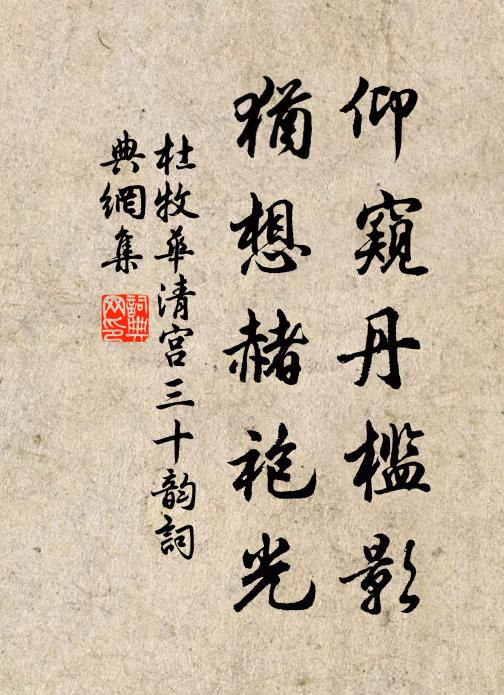 仰窺丹檻影
猶想赭袍光
杜牧華清宮三十韵詞
典網集
詞典
网印